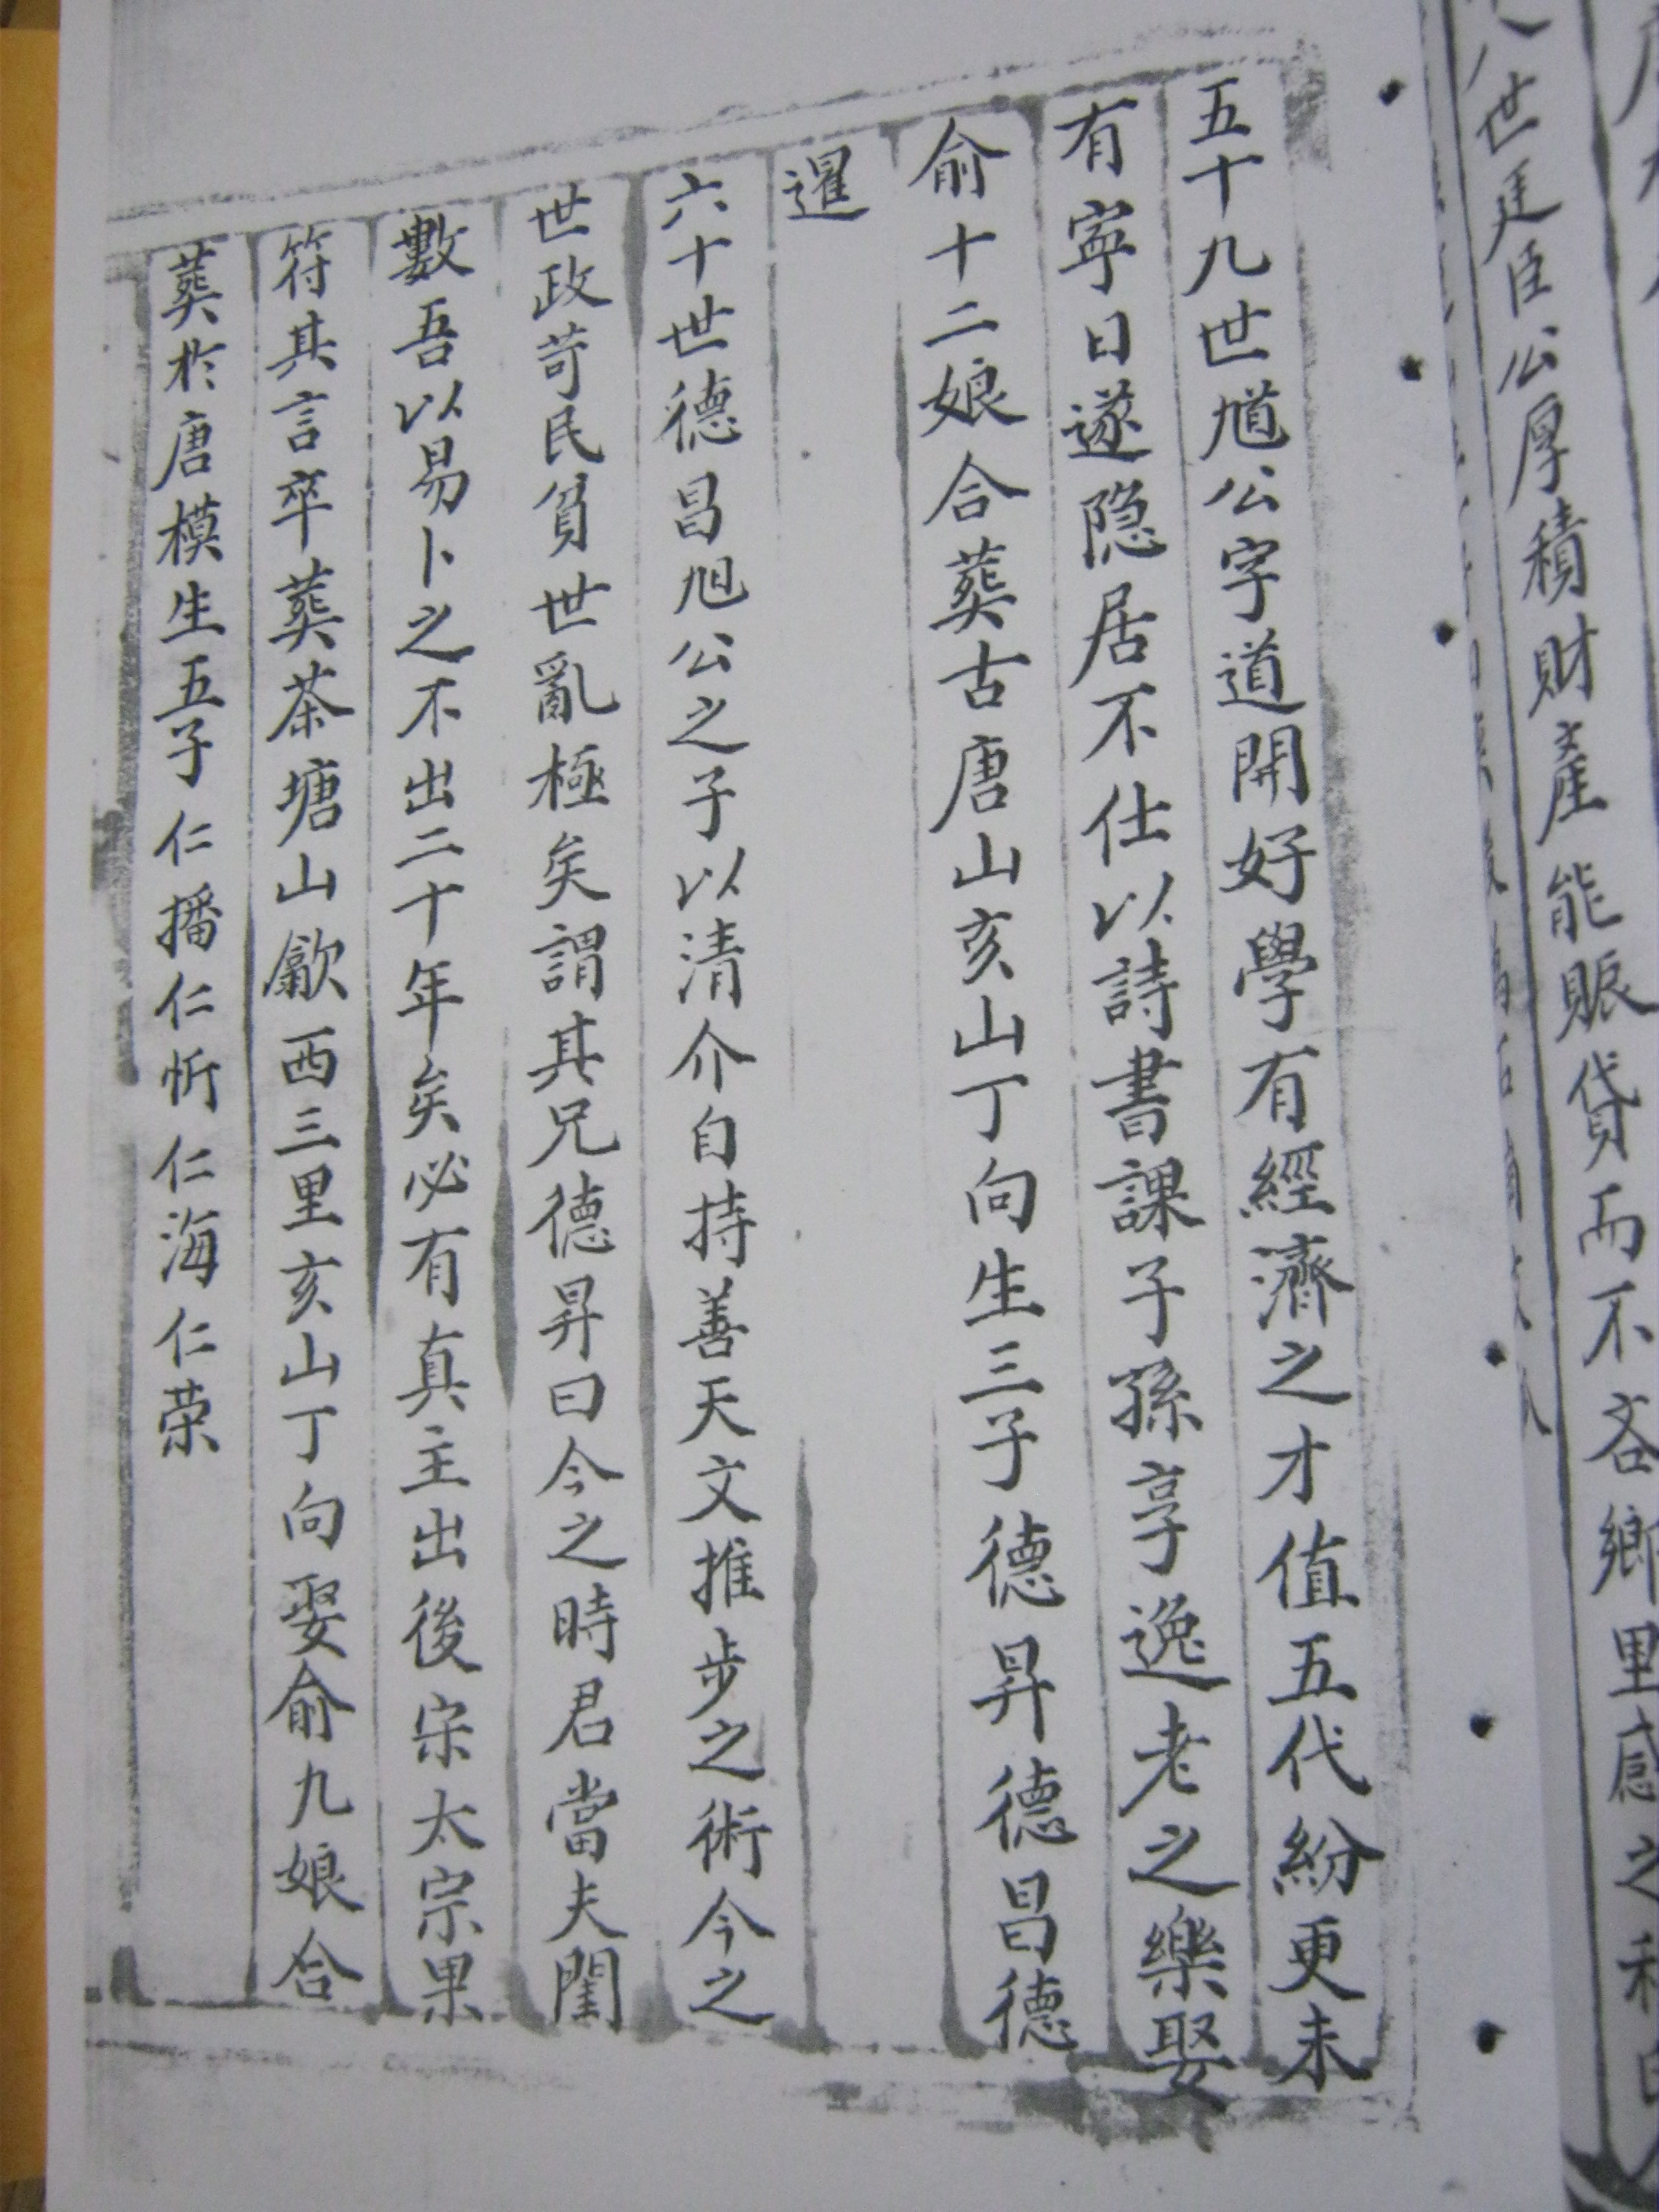 八世廷臣公厚積財產能賑貸而不吝鄉里感之
五十九世馗公字道開好學有經濟之才值五代紛更未
有寧日遂隐居不仕以詩書課子孫享逸老之樂娶
俞十二娘合葬古唐山亥山丁向生三子德昇德昌德
暹
六十世德昌馗公之子以清介自持善天文推步之術今之
世政苛民貧世亂極矣謂其兄德昇曰今之時君當夫閏
數吾以易卜之不出二十年矣必有真主出後宋太宗果
符其言卒葬茶塘山歙西三里亥山丁向娶俞九娘合
葬於唐模生五子仁播仁忻仁海仁荣